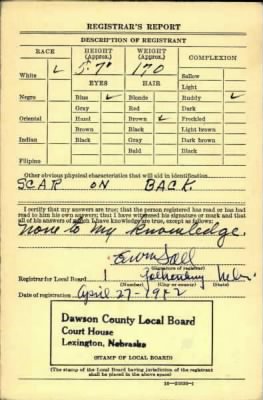 REGISTRAR'S REPORT
DESCRIPTION OF REGISTRANT
RACE HEIGHT (Approx.) WEIGHT (Approx.) COMPLEXION
White ✓ 5-7" 170 Sallow
Light
EYES HAIR
Negro Blue ✓ Blonde Ruddy ✓
Gray Red Dark
Oriental Hazel Brown ✓ Freckled
Brown Black Light brown
Indian Black Gray Dark brown
Bald Black
Filipino
Other obvious physical characteristics that will aid in identification
SCAR ON BACK
I certify that my answers are true; that the person registered has read or has had
read to him his own answers; that I have witnessed his signature or mark and that
all of his answers of which I have knowledge are true, except as follows:
None to my knowledge.
(Signature of registrar)
Registrar for Local Board 1 Gothenburg Nebr
(Number) (City or county) (State)
Date of registration April 27-1942
Dawson County Local Board
Court House
Lexington, Nebraska
(STAMP OF LOCAL BOARD)
(The stamp of the Local Board having jurisdiction of the registrant
shall be placed in the above space)